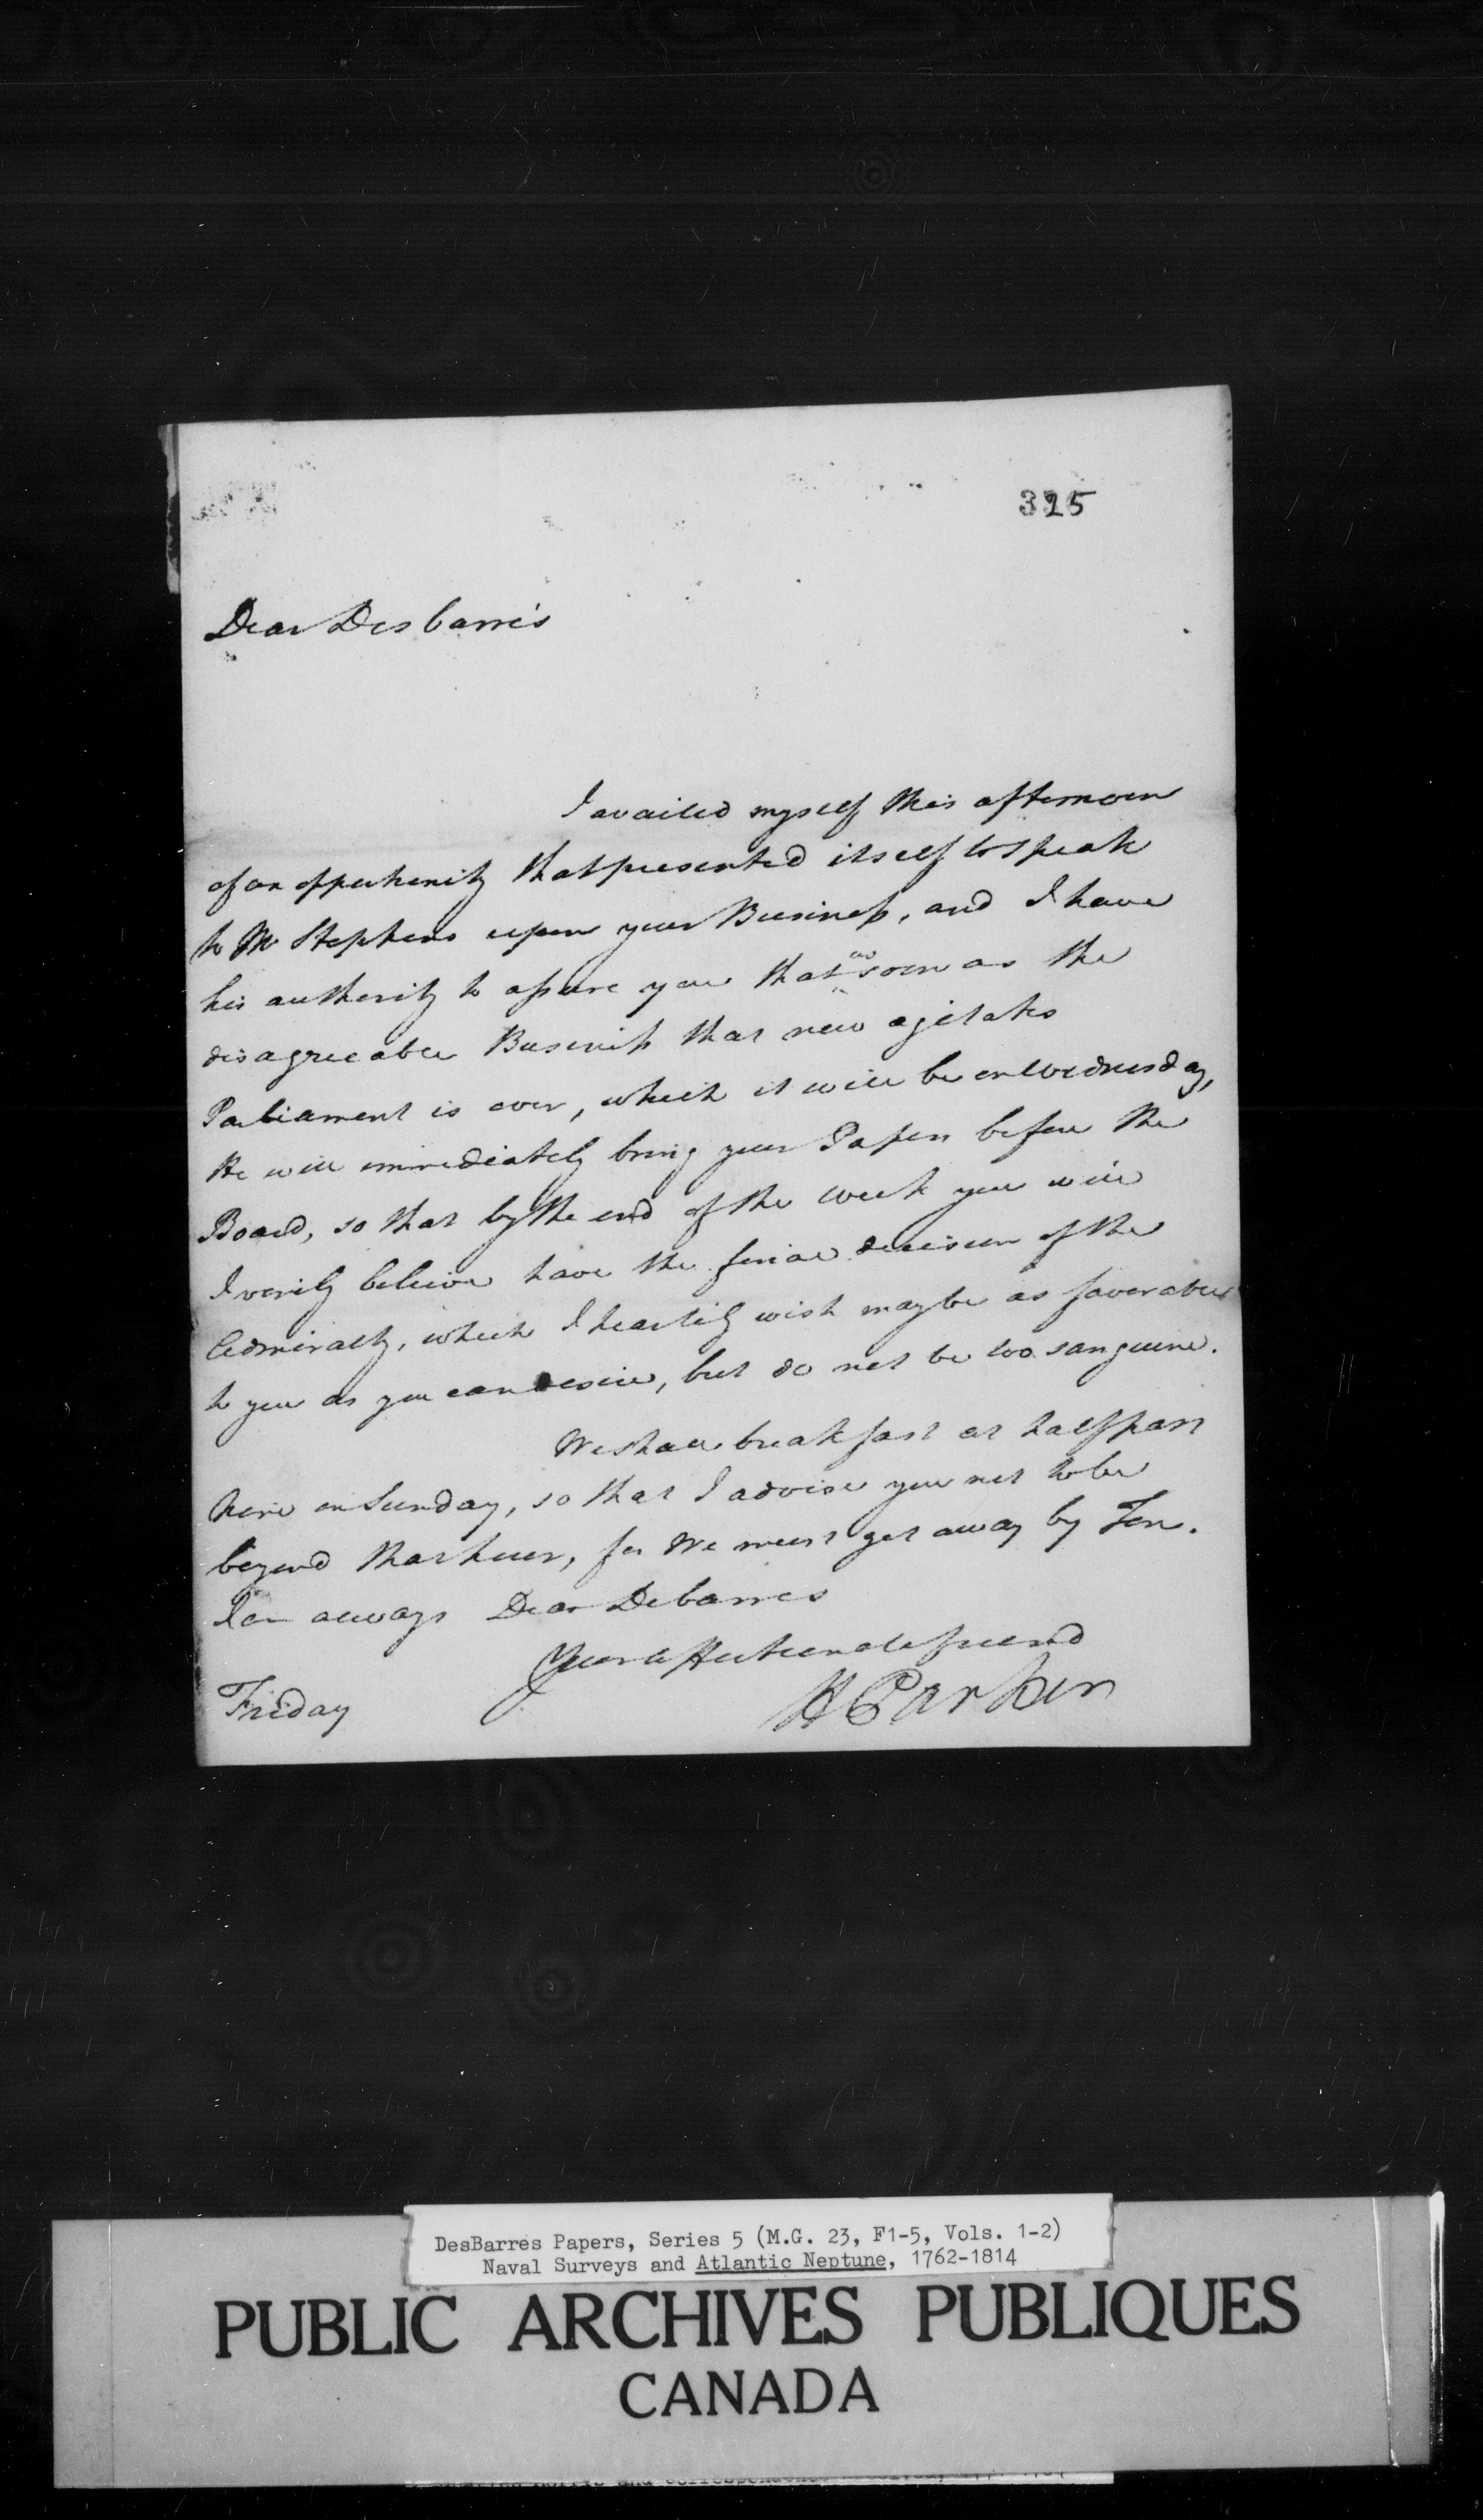 325
Dear Desbarrés
I availed myself this afternoon
of an oppertunity that presented itself to speak
to Mr Stephens upon your Business, and I have
his authority to assure you that as soon as the
disagreeable Business that now agitates
Parliament is over, which it will be on Wednesday,
He will immediately bring your Papers before the
Board, so that by the end of the week you will
I verily believe have the final decision of the
Admiralty, which I heartily wish may be as favorable
to you as you can desire, but do not be too sanguine.
We shall breakfast at half past
Nine on Sunday, so that I advise you not to be
beyond that hour, for We must get away by Ten.
I am always Dear Debarres
Your affectionate friend
H Parker
Friday
DesBarres Papers, Series 5 (M.G. 23, F1-5, Vols. 1-2)
Naval Surveys and Atlantic Neptune, 1762-1814
PUBLIC ARCHIVES PUBLIQUES
CANADA